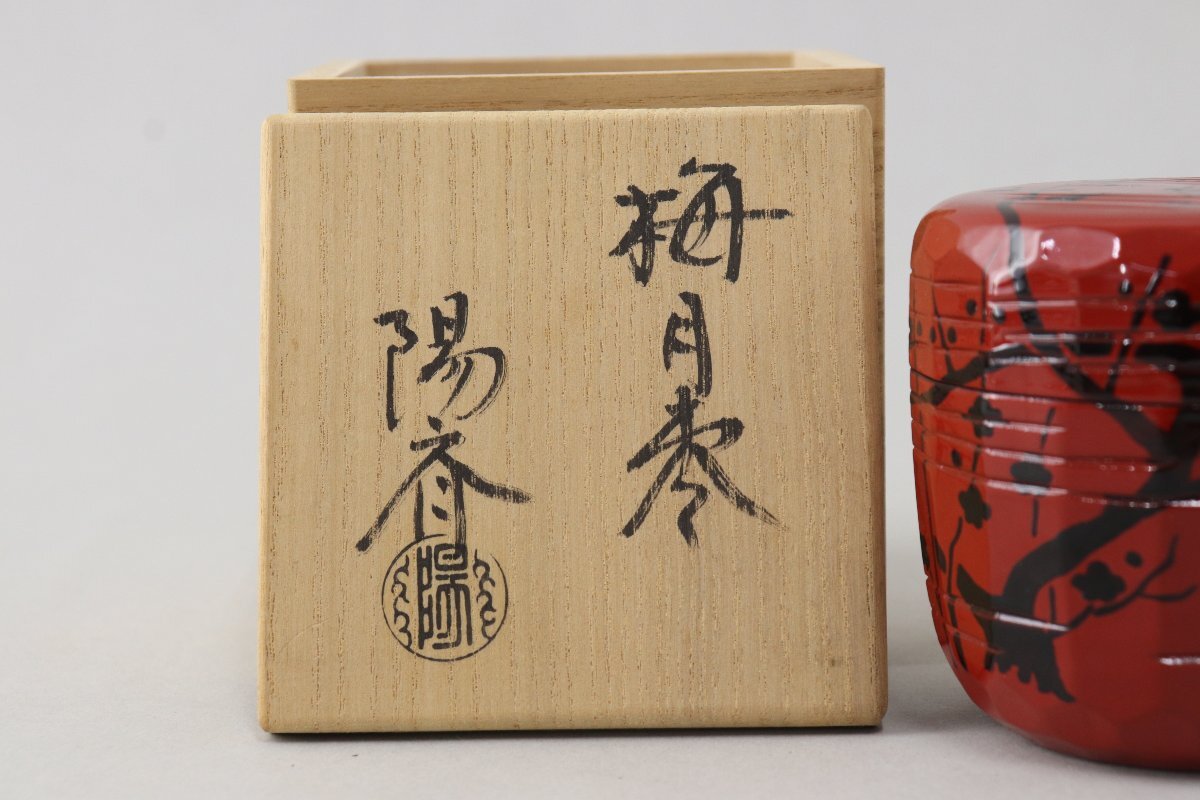 梅月棗
陽斉
陽